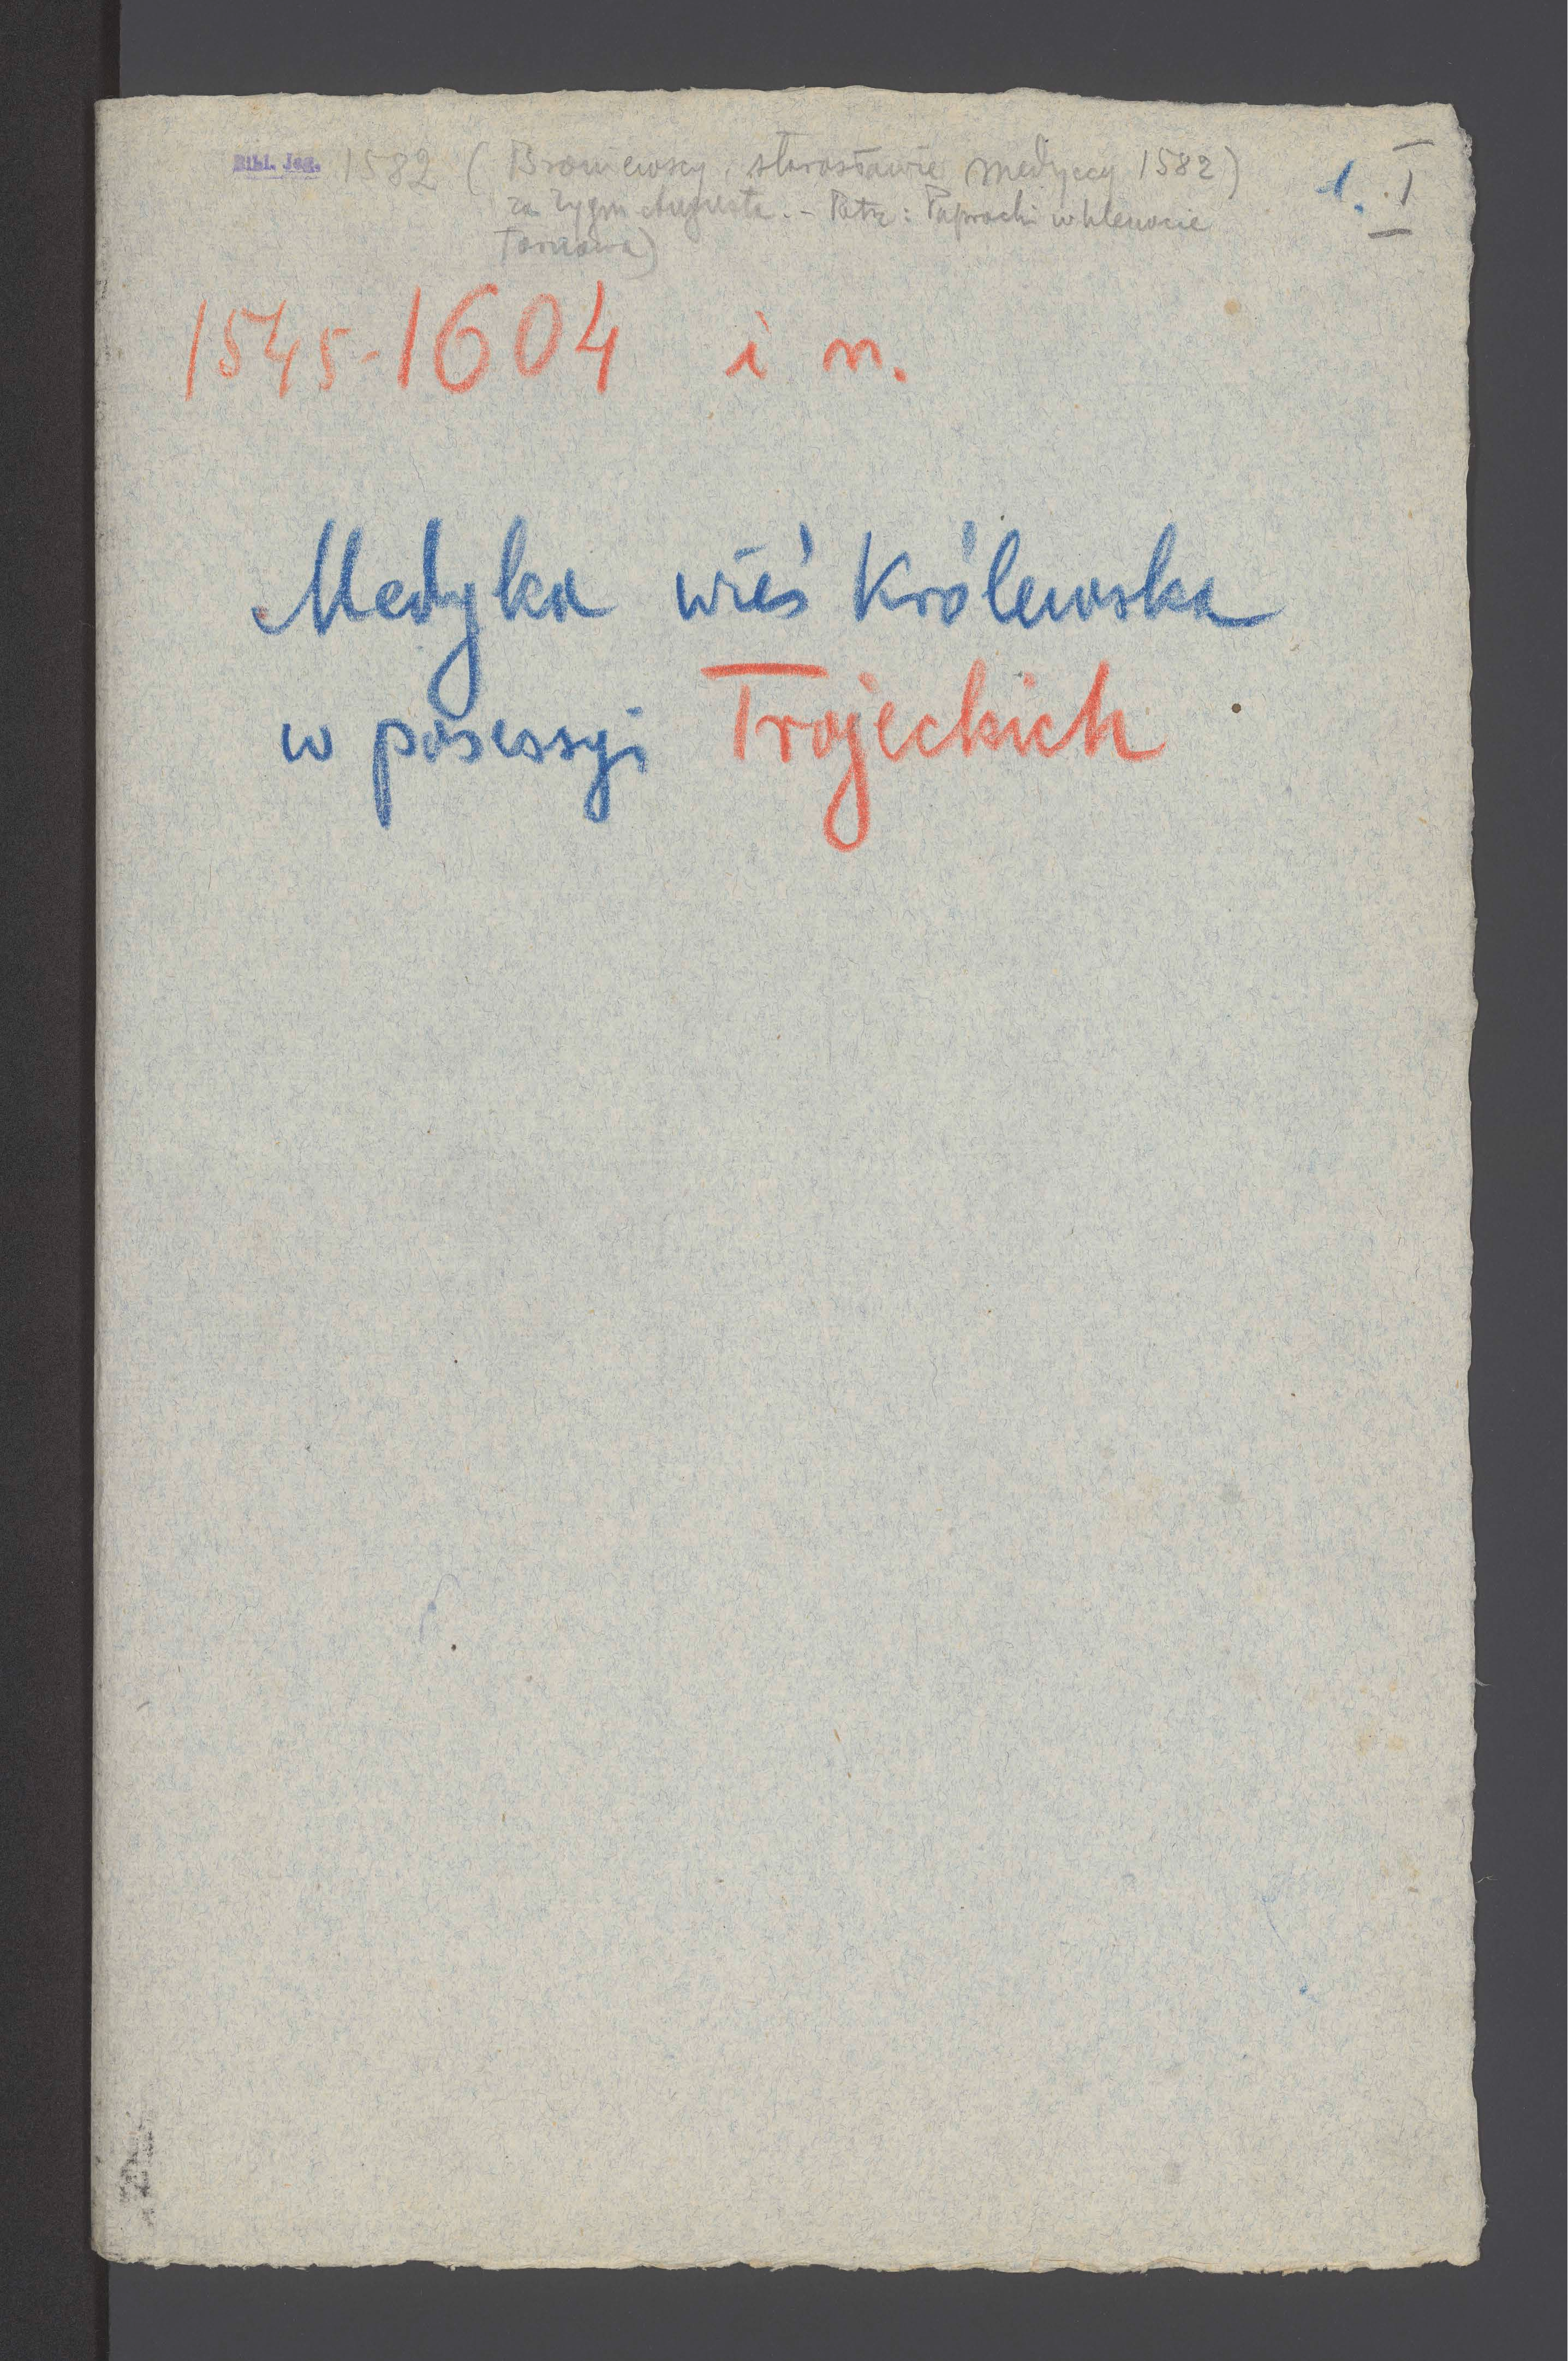 Bibl. Jag. 1582 (Broniewscy, starostowie medyccy 1582) 1. I
za Zygm Augusta. – Patrz: Paprocki w klenocie
Tarnawa)
1545-1604 i n.
Medyka wieś Królewska
w posessyi Trojeckich